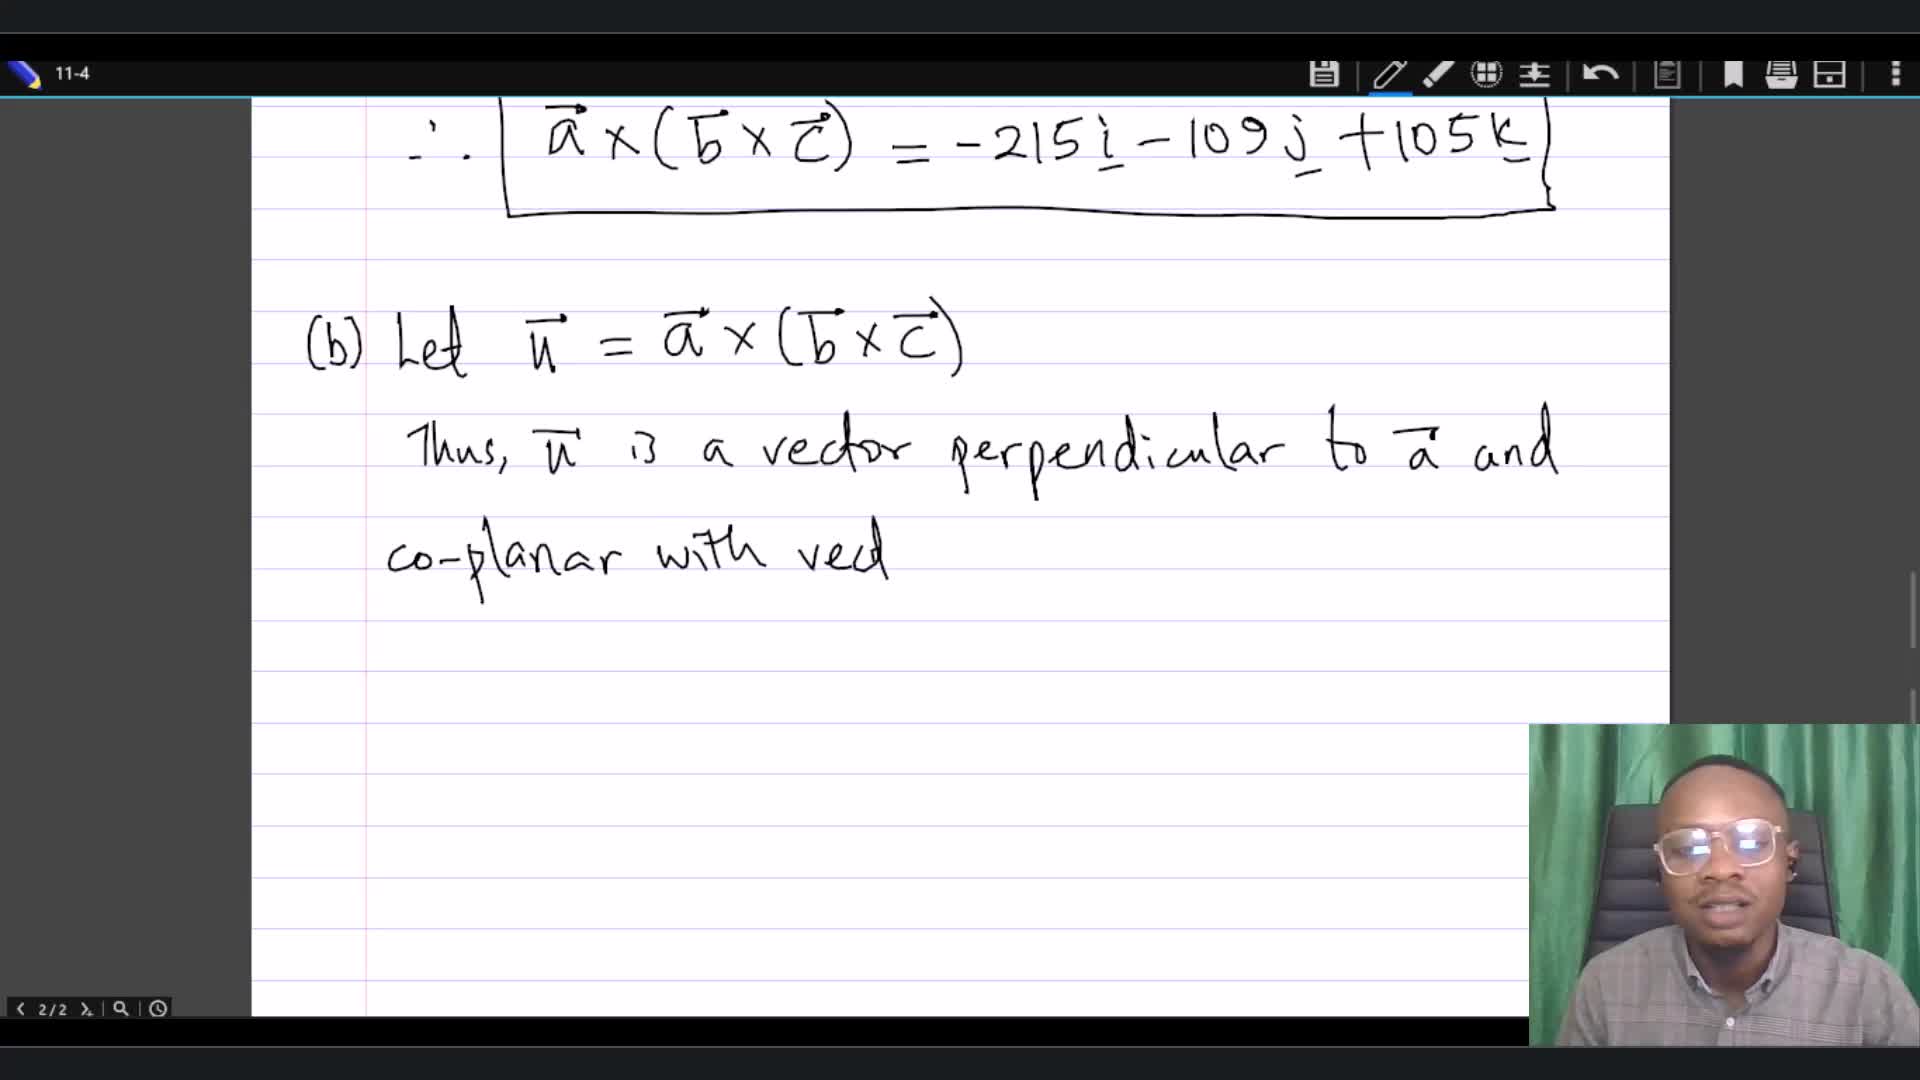 11-4
∴ a⃗ × (b⃗ × c⃗) = -215i - 109j + 105k
(b) Let u⃗ = a⃗ × (b⃗ × c⃗)
Thus, u⃗ is a vector perpendicular to a⃗ and
co-planar with vect
2/2